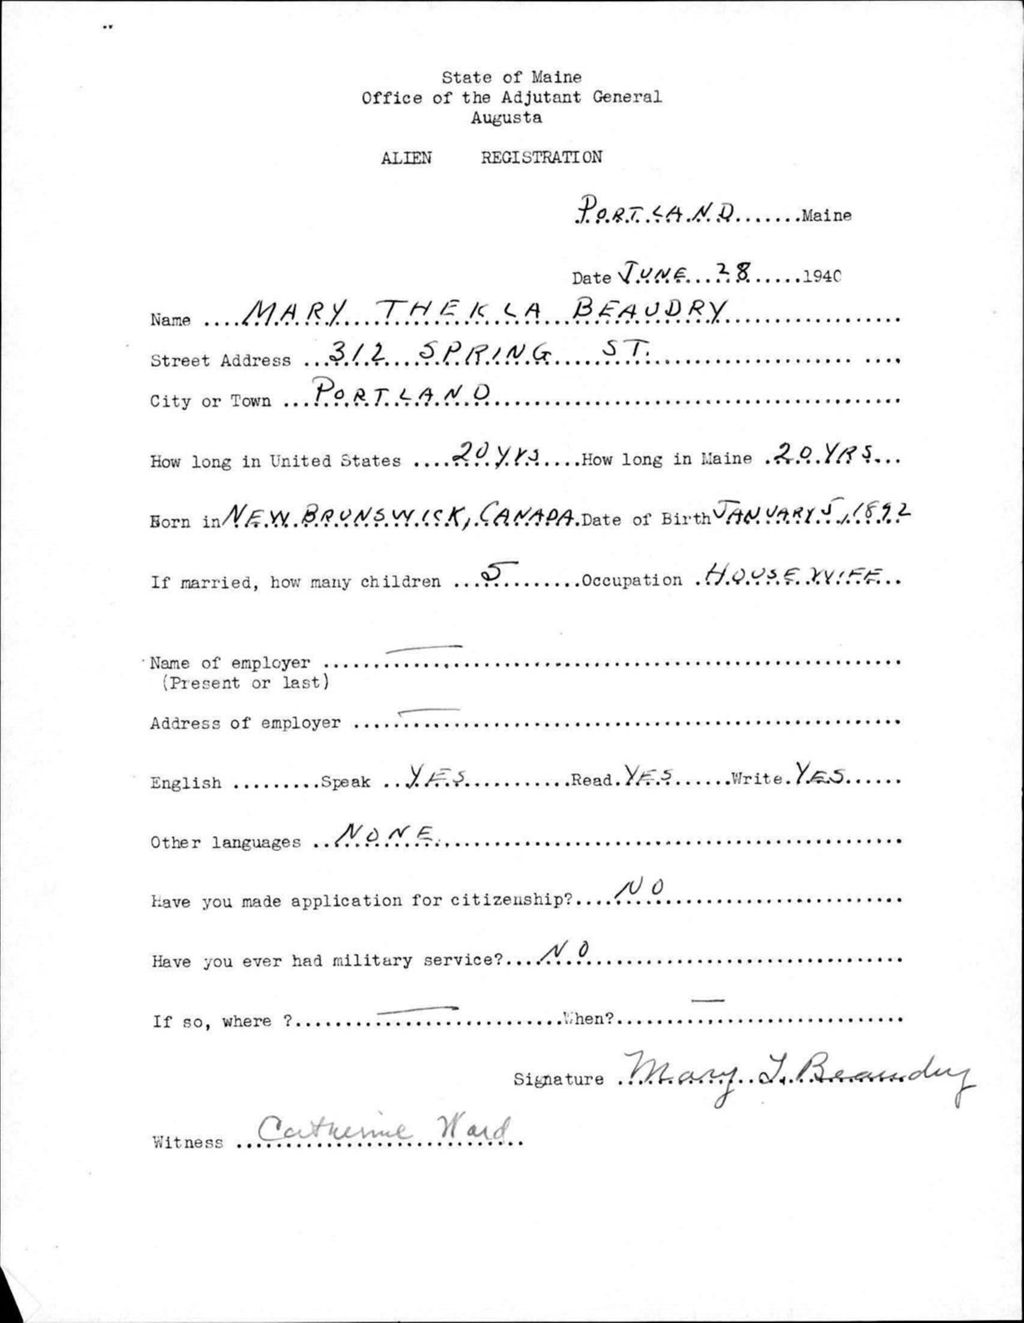 State of Maine
Office of the Adjutant General
Augusta
ALIEN REGISTRATION
PORTLAND.......Maine
Date JUNE...28......1940
Name ....MARY....THEKLA...BEAUDRY..................
Street Address ...312...SPRING.....ST...................... ....
City or Town ...PORTLAND........................................
How long in United States ....20 yrs.....How long in Maine .20 YRS...
Born in NEW BRUNSWICK, CANADA.Date of Birth JANUARY 5, 1892
If married, how many children ...5.........Occupation .HOUSEWIFE..
Name of employer ...—...........................................
(Present or last)
Address of employer ...—........................................
English .........Speak ..YES...........Read.YES......Write.YES......
Other languages ..NONE..........................................
Have you made application for citizenship?....NO........................
Have you ever had military service?....NO.............................
If so, where ?.........—..............When?........—..................
Signature ..Mary T. Beaudry
Witness ..Catherine Ward